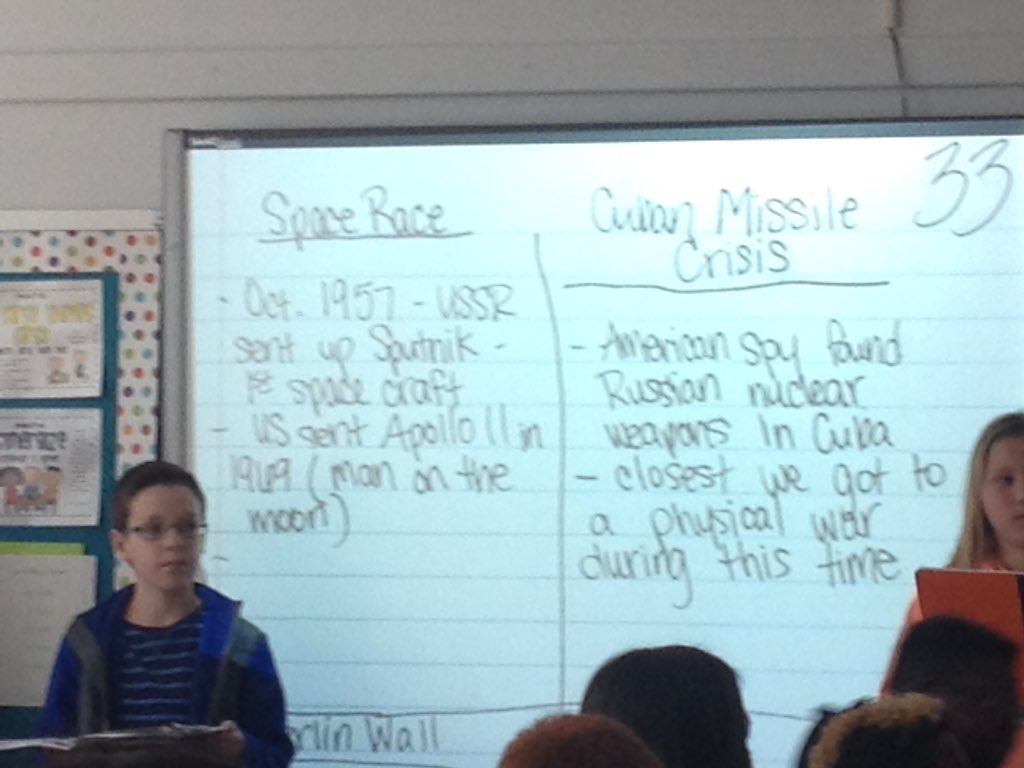 33
Space Race
- Oct. 1957 - USSR
sent up Sputnik -
1st space craft
- US sent Apollo 11 in
1969 (man on the
moon)
-
Cuban Missile
Crisis
- American spy found
Russian nuclear
weapons in Cuba
- closest we got to
a physical war
during this time
erlin Wall